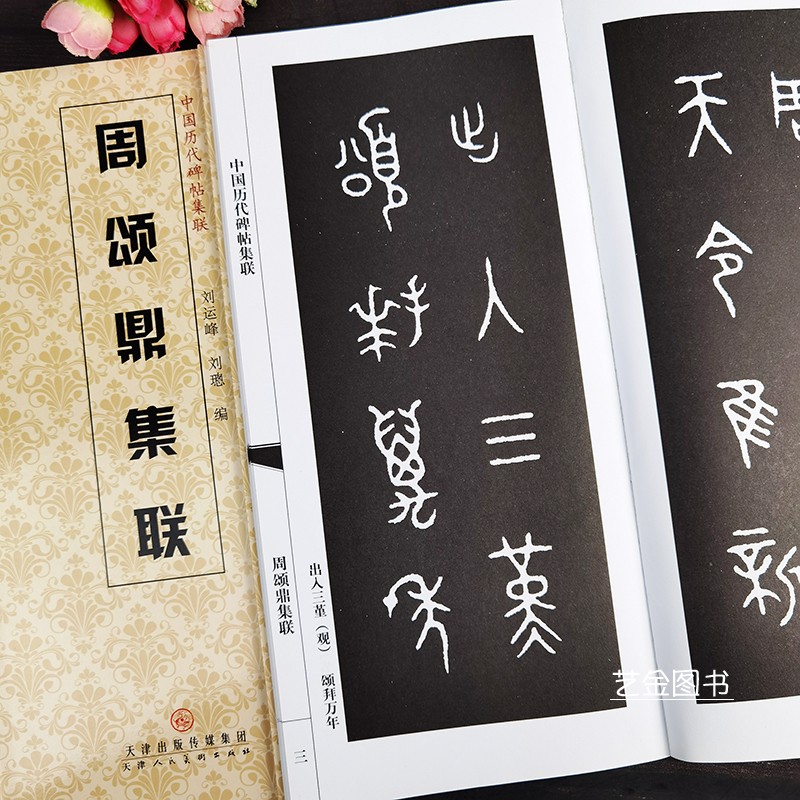 中国历代碑帖集联
周颂鼎集联
刘运峰 刘璁 编
天津出版传媒集团
天津人民美术出版社
中国历代碑帖集联
周颂鼎集联
三
出入三堇（观） 颂拜万年
出入三堇
颂拜万年
周
天令隹新
艺金图书